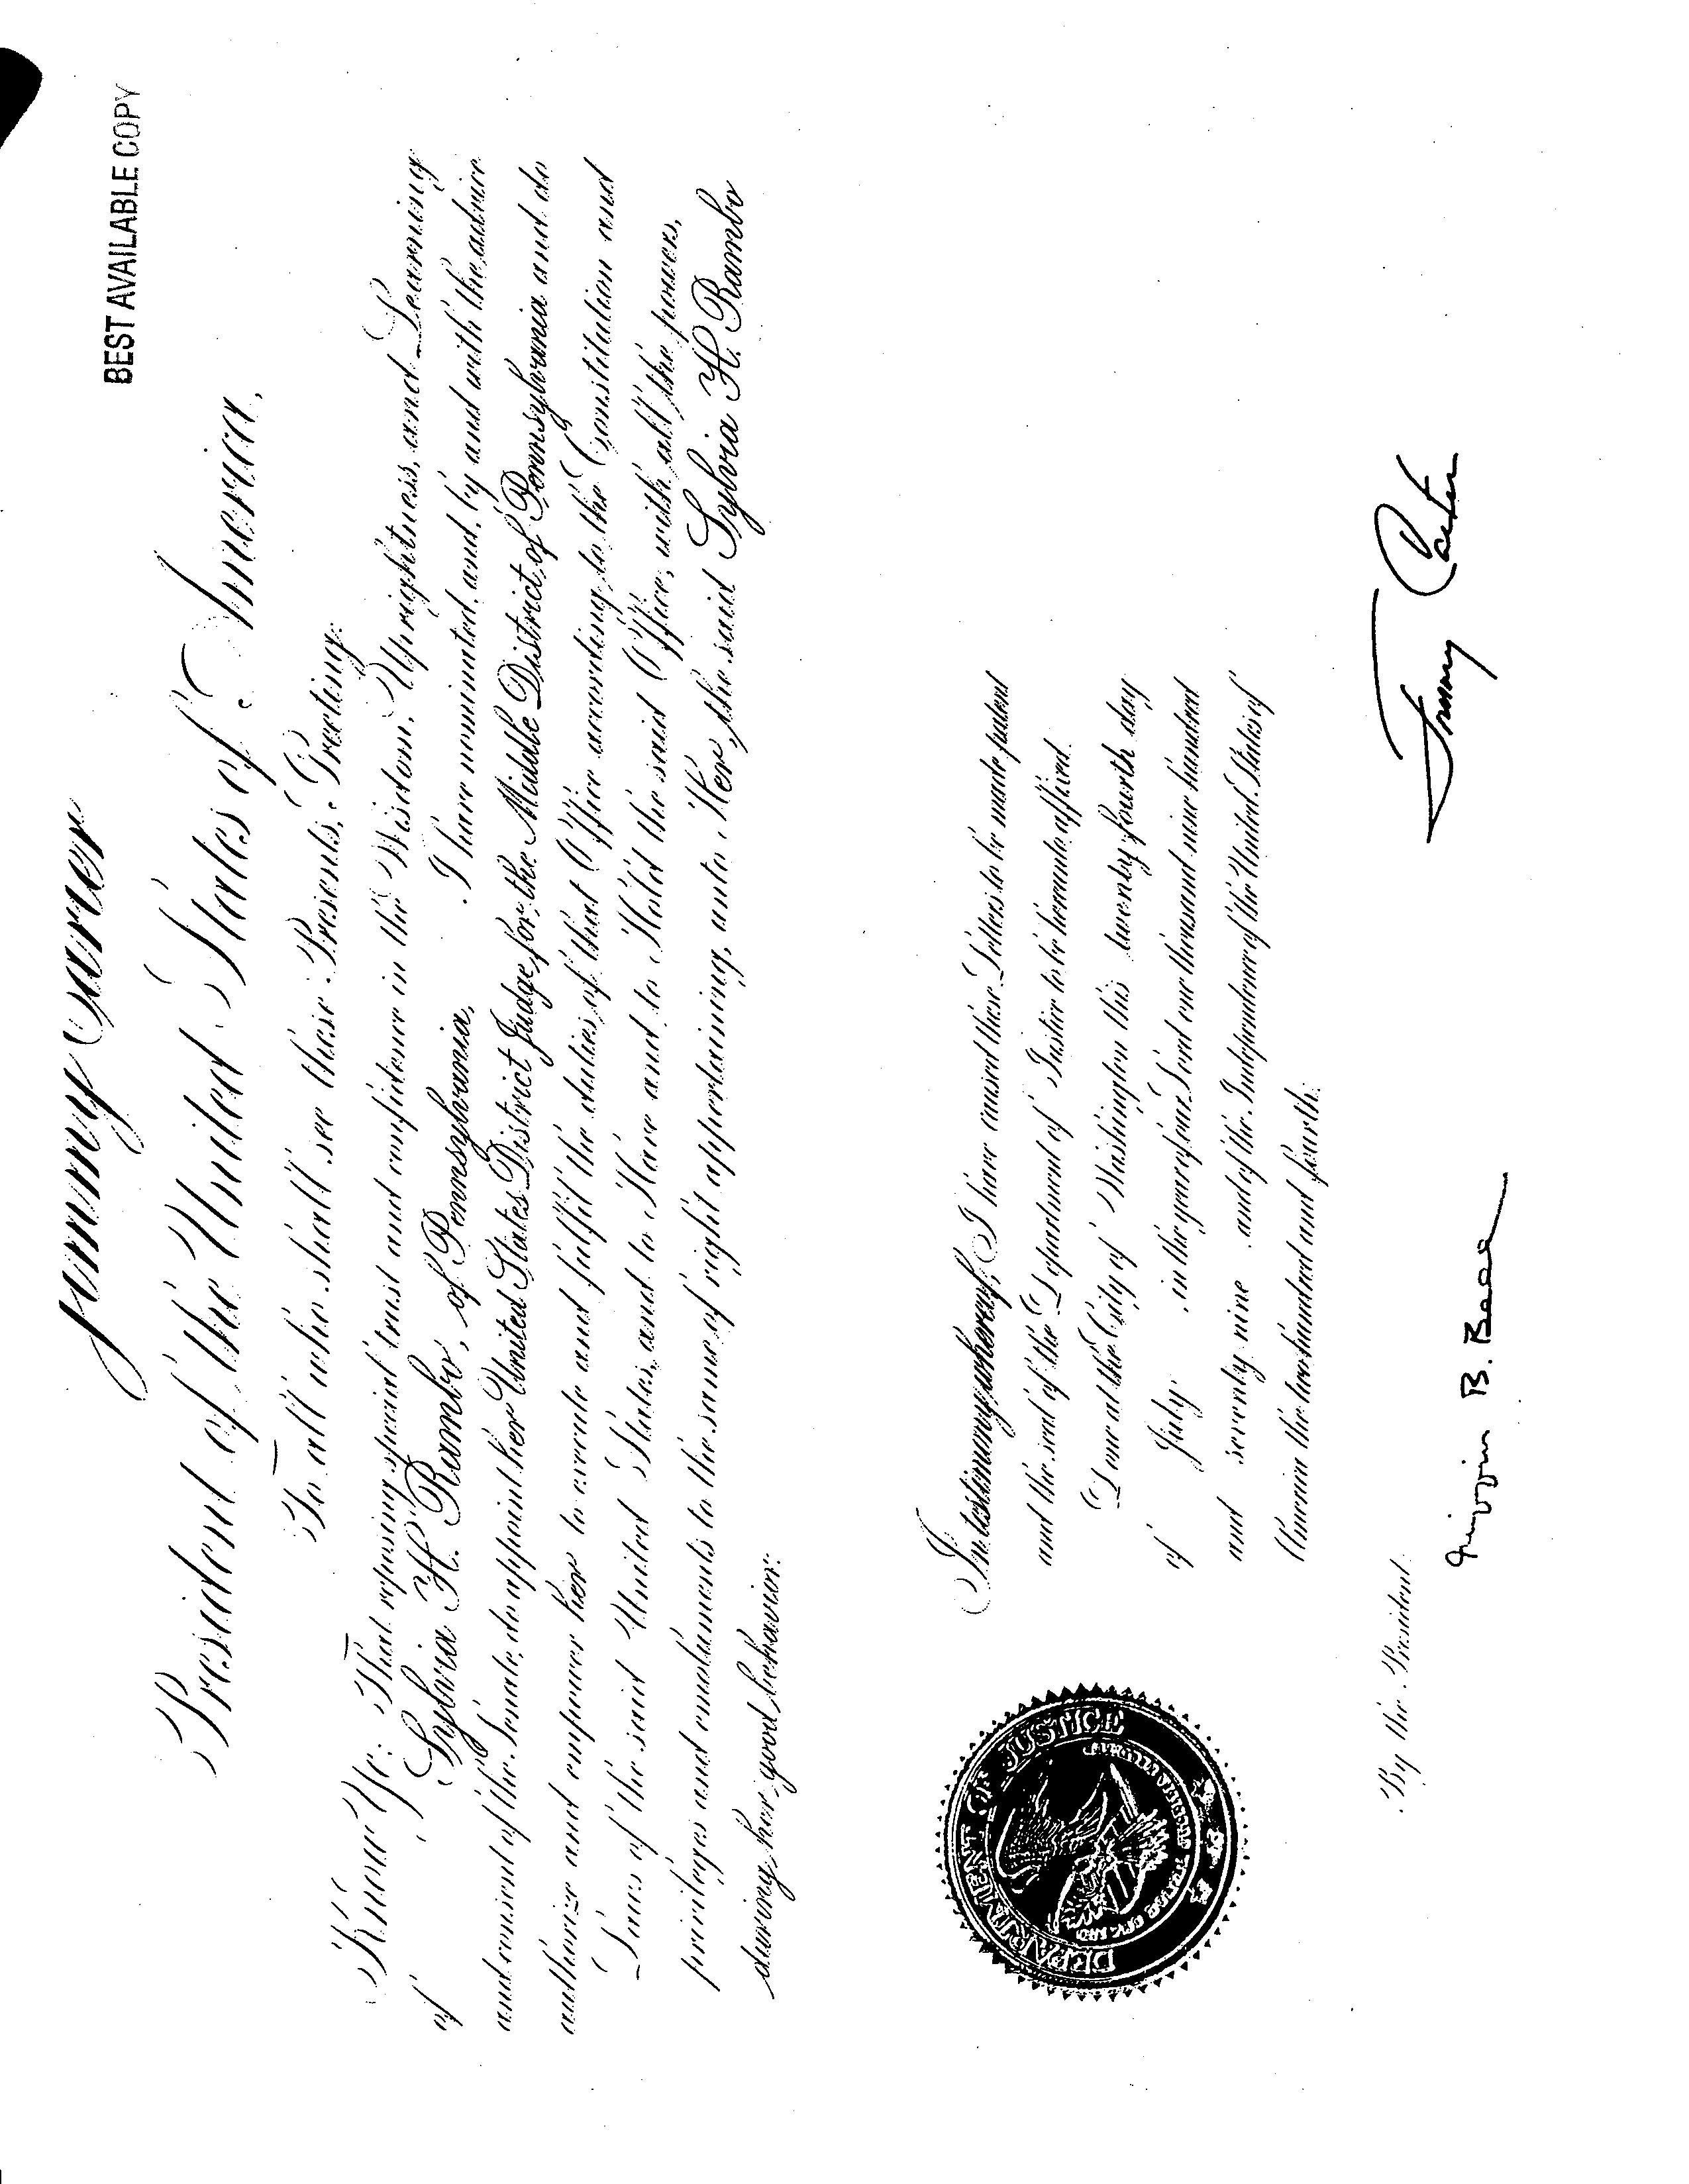 BEST AVAILABLE COPY
Jimmy Carter
President of the United States of America,
To all who shall see these Presents, Greeting:
Know Ye; That reposing special trust and confidence in the Wisdom, Uprightness, and Learning
of Sylvia H. Rambo, of Pennsylvania, I have nominated, and, by and with the advice
and consent of the Senate, do appoint her United States District Judge for the Middle District of Pennsylvania and do
authorize and empower her to execute and fulfil the duties of that Office according to the Constitution and
Laws of the said United States, and to Have and to Hold the said Office, with all the powers,
privileges and emoluments to the same of right appertaining, unto Her, the said Sylvia H. Rambo
during her good behavior.
In testimony whereof, I have caused these Letters to be made patent
and the seal of the Department of Justice to be hereunto affixed.
Done at the City of Washington this twenty fourth day
of July in the year of our Lord one thousand nine hundred
and seventy nine and of the Independence of the United States of
America the two hundred and fourth.
DEPARTMENT OF JUSTICE
By the President:
Jimmy Carter
Griffin B. Bell